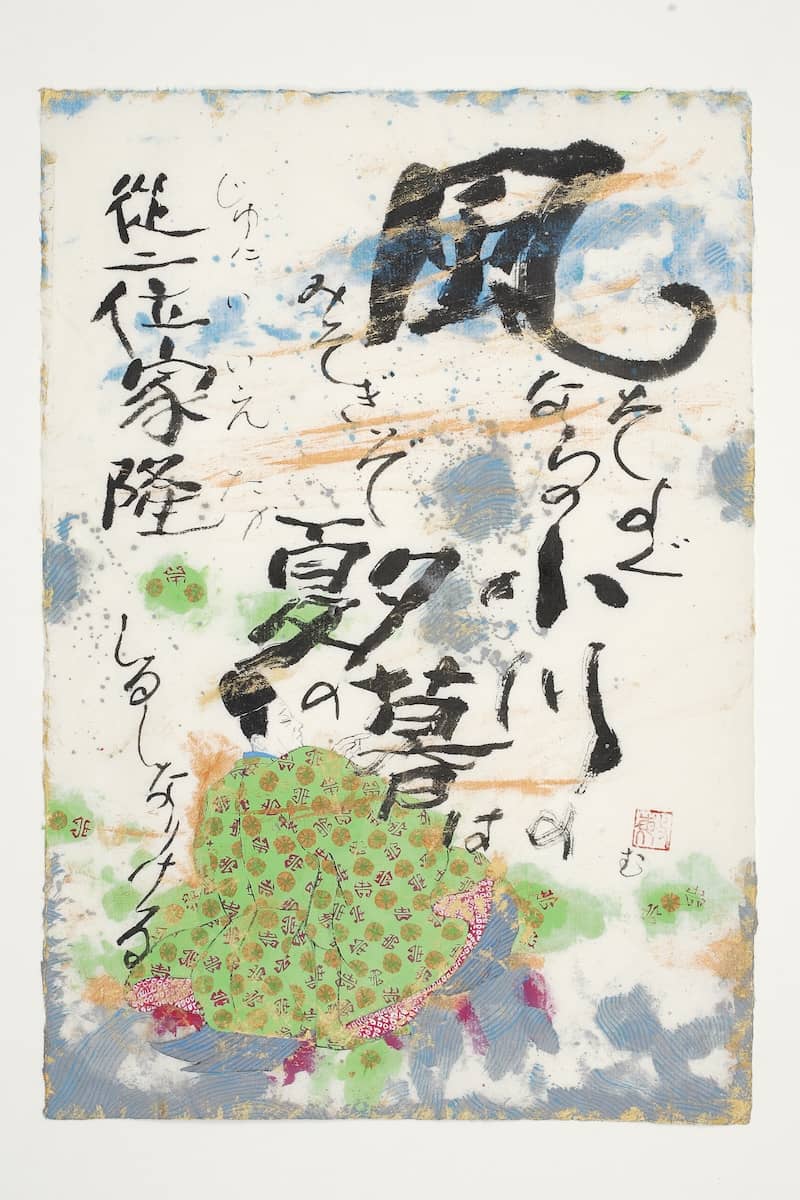 風そよぐ
ならの小川の
夕暮は
みそぎぞ夏の
しるしなりける
じゅにい いえたか
従二位家隆
む